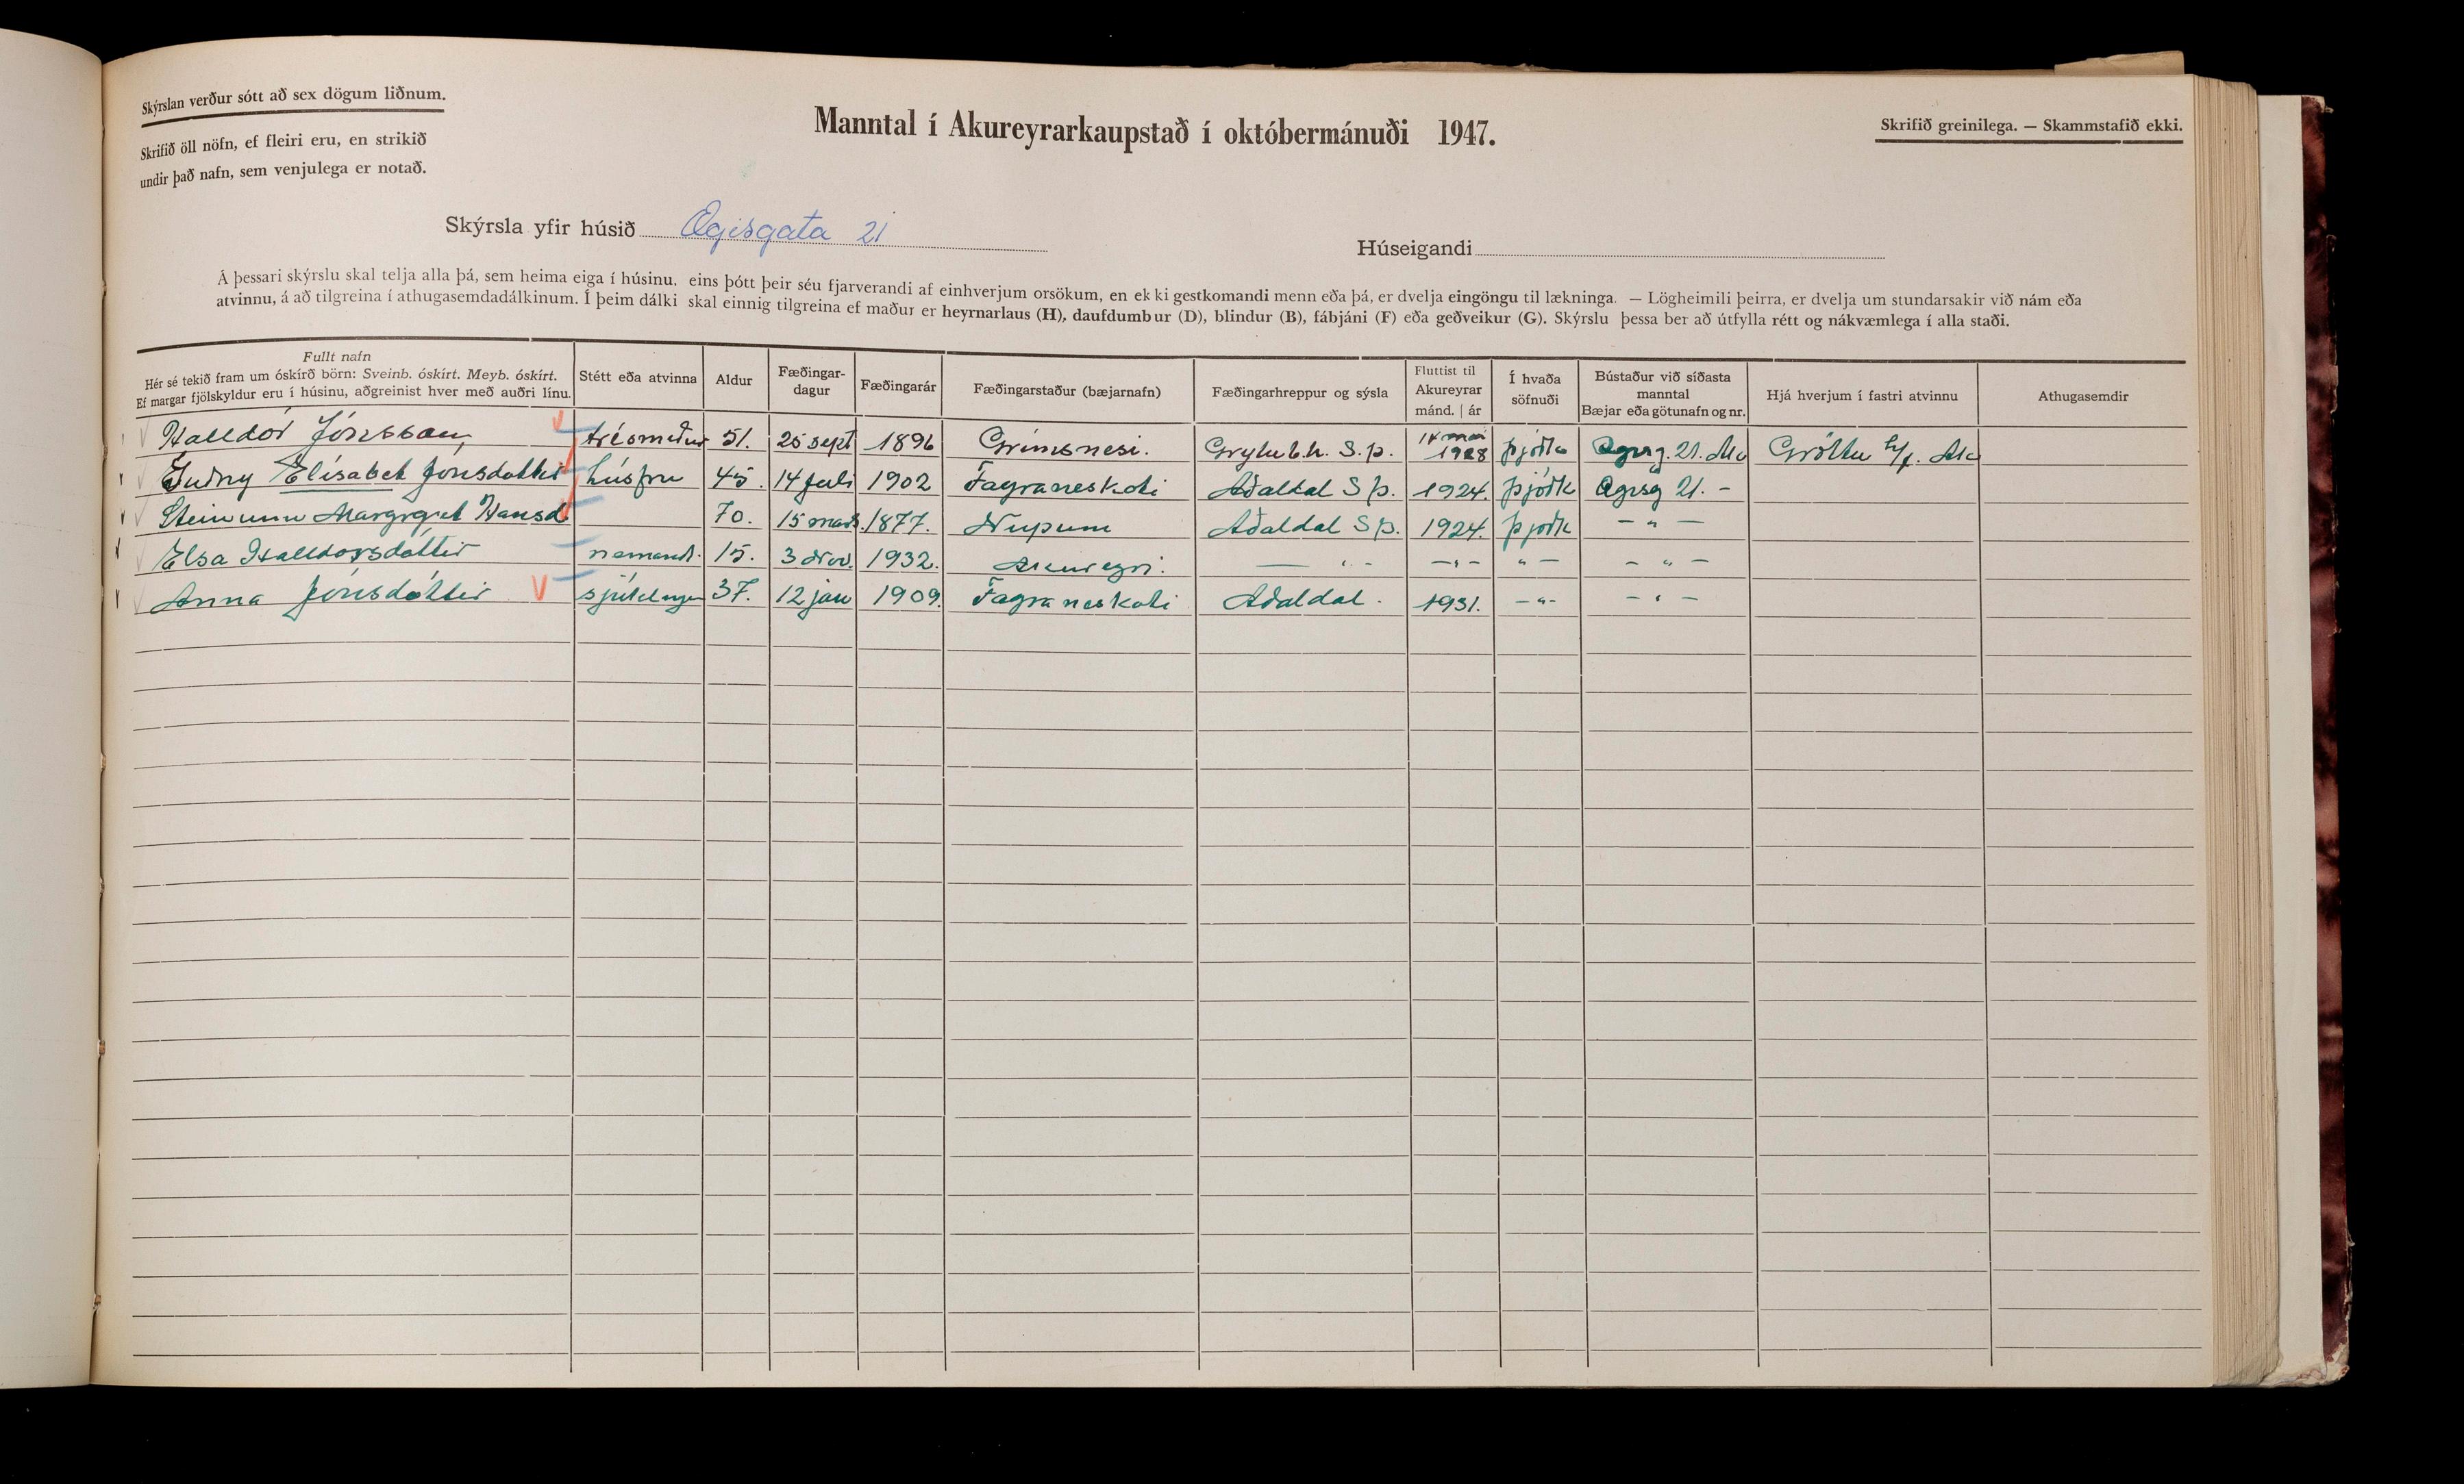 Skýrslan verður sótt að sex dögum liðnum.
Skrifið öll nöfn, ef fleiri eru, en strikið
undir það nafn, sem venjulega er notað.
Manntal í Akureyrarkaupstað í októbermánuði 1947.
Skrifið greinilega. — Skammstafið ekki.
Skýrsla yfir húsið Ægisgata 21
Húseigandi
Á þessari skýrslu skal telja alla þá, sem heima eiga í húsinu, eins þótt þeir séu fjarverandi af einhverjum orsökum, en ekki gestkomandi menn eða þá, er dvelja eingöngu til lækninga. — Lögheimili þeirra, er dvelja um stundarsakir við nám eða
atvinnu, á að tilgreina í athugasemdadálkinum. Í þeim dálki skal einnig tilgreina ef maður er heyrnarlaus (H), daufdumbur (D), blindur (B), fábjáni (F) eða geðveikur (G). Skýrslu þessa ber að útfylla rétt og nákvæmlega í alla staði.
Fullt nafn
Hér sé tekið fram um óskírð börn: Sveinb. óskírt. Meyb. óskírt.
Ef margar fjölskyldur eru í húsinu, aðgreinist hver með auðri línu.
Stétt eða atvinna
Aldur
Fæðingar-
dagur
Fæðingarár
Fæðingarstaður (bæjarnafn)
Fæðingarhreppur og sýsla
Fluttist til
Akureyrar
mánd. | ár
Í hvaða
söfnuði
Bústaður við síðasta
manntal
Bæjar eða götunafn og nr.
Hjá hverjum í fastri atvinnu
Athugasemdir
Halldór Jónsson, trésmiður 51. 25 sept 1896 Grímsnesi. Grytub.h. S.þ. 14 mai 1928 þjóðk Ægisg. 21. Ak Gróttu h/f. Ak
Guðny Elísabet Jónsdottir húsfru 45. 14 Juli 1902 Fagraneskoti Aðaldal S þ. 1924. þjóðk Ægisg 21. -
Steinunn Margrgret Hansd 70. 15 mars. 1877. Nupum Aðaldal S þ. 1924. þjóðk — " —
Elsa Halldorsdóttir nemandi. 15. 3 Nov. 1932. Akureyri. — " - — " - " — — " —
Anna Jónsdóttir 37. 12 jan 1909. Fagraneskoti Aðaldal. 1931. — " - — " —